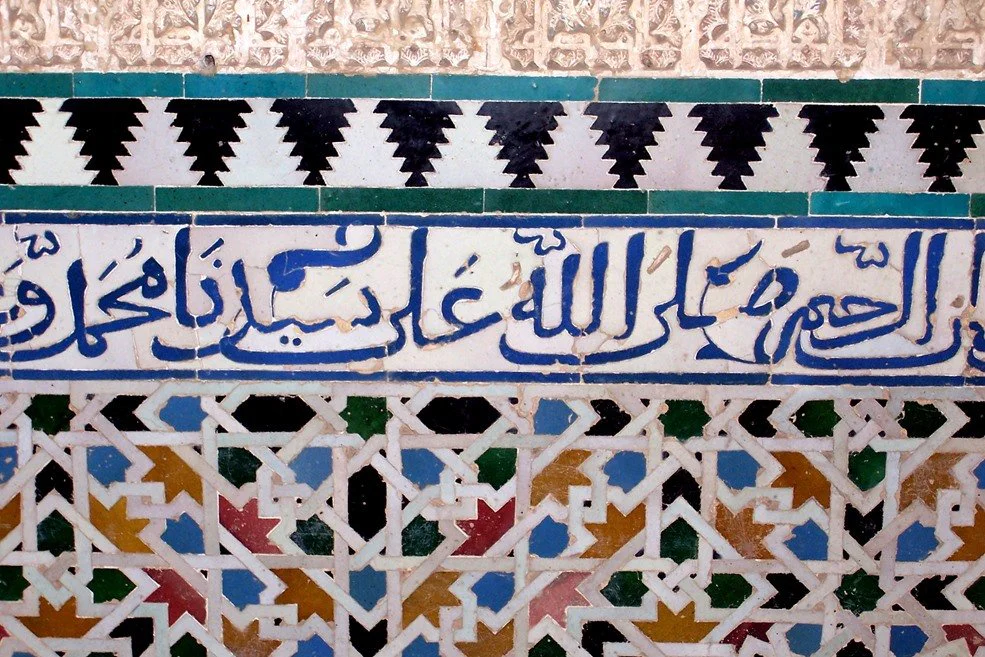 الرحيم صلى الله على سيدنا محمد و